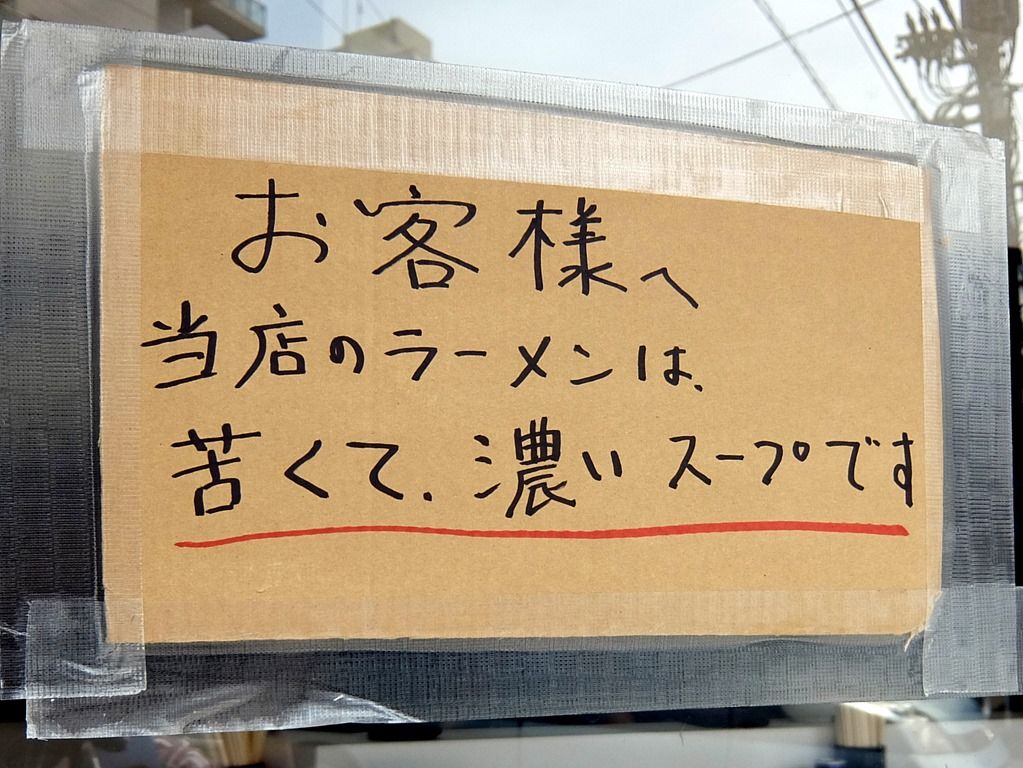 お客様へ
当店のラーメンは、
苦くて、濃い スープです